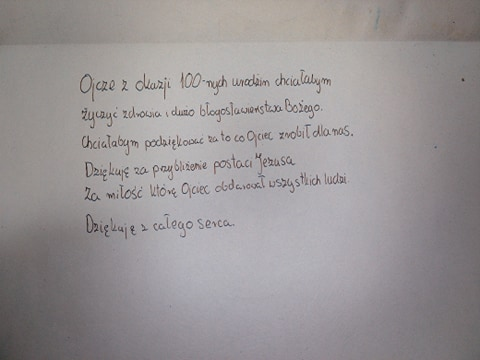 Ojcze z okazji 100-nych urodzin chciałabym
życzyć zdrowia i dużo błogosławieństwa Bożego.
Chciałabym podziękować za to co Ojciec zrobił dla nas.
Dziękuję za przybliżenie postaci Jezusa
Za miłość którą Ojciec obdarował wszystkich ludzi.
Dziękuję z całego serca.